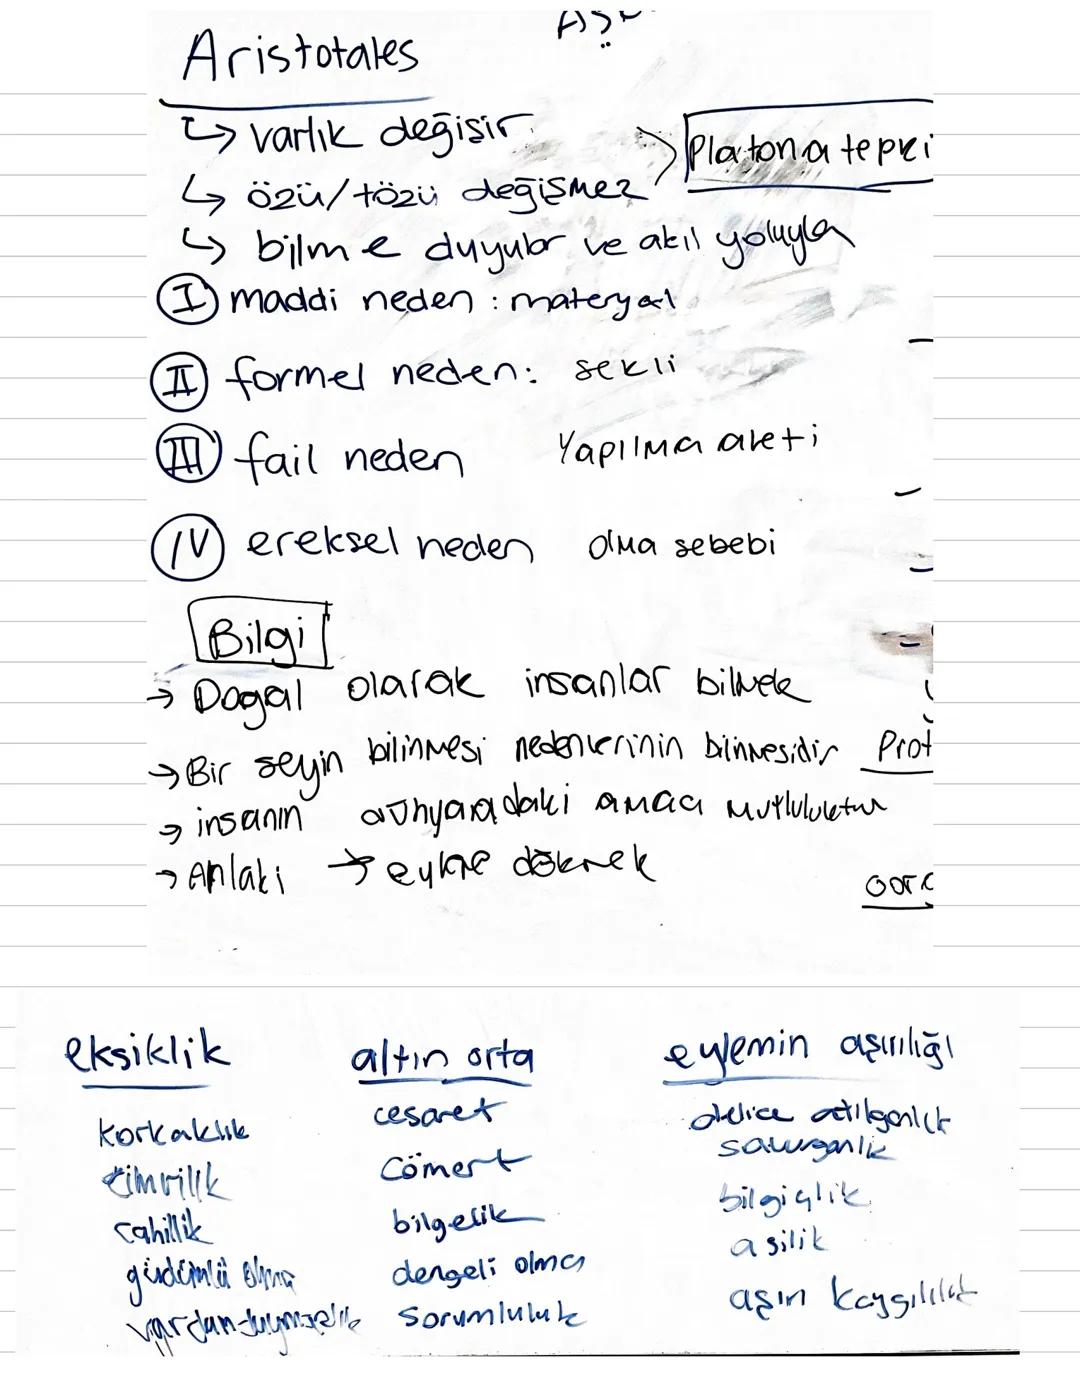 Aristotales
↳ varlık değişir.
↳ özü/tözü değişmez
> Platona tepki
↳ bilme duyular ve akıl yoluyla
I maddi neden : materyal
II formel neden: sekli
III fail neden Yapılma aleti
IV ereksel neden olma sebebi
Bilgi
→ Dogal olarak insanlar bilmek
→ Bir seyin bilinmesi nedenlerinin bilinmesidir
Prot
→ insanın dünyadaki amacı mutluluktur
→ Ahlaki → eyleme dökmek
Gor
eksiklik altın orta eylemin aşırılığı
korkaklık cesaret delice atılganlık
cimrilik cömert savurganlık
cahillik bilgelik bilgiçlik
güdümlü olma dengeli olma asilik
sorumluluk aşırı kaygılılık